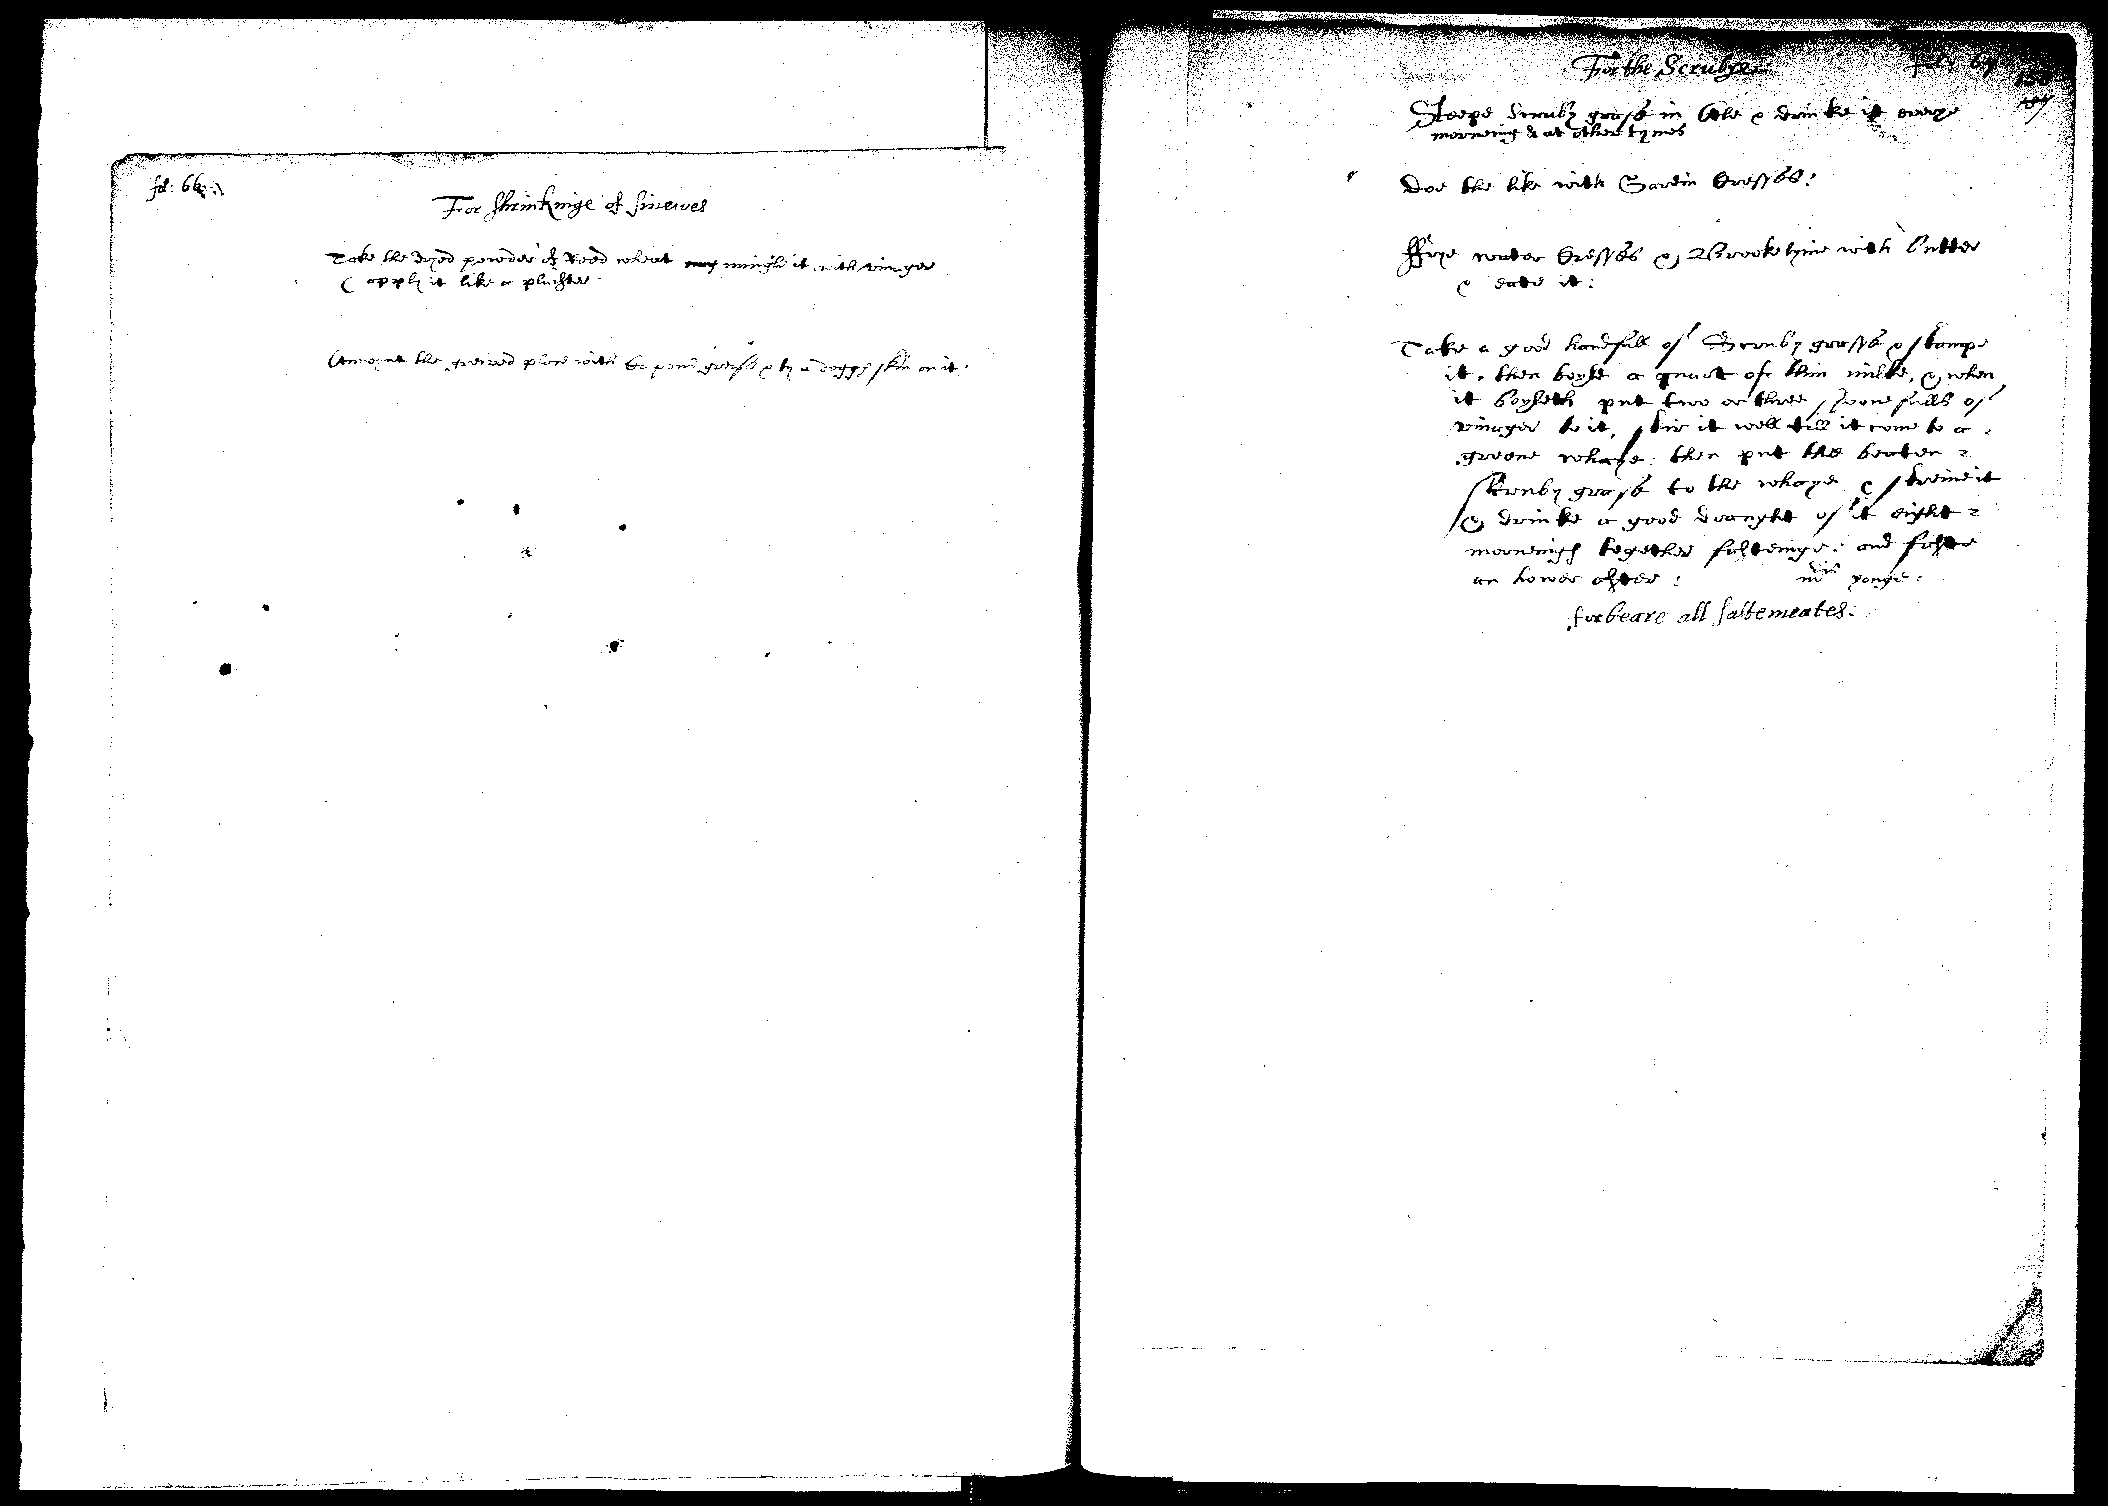 fol: 66
For shrinkinge of sinewes
Take the dryed powder of Read wheat mingle it with viniger
& apply it like a plaister
Annoynt the greived place with Capons grease & ty a doggs skin on it.
For the Scrubye
Steepe Scruby grasse in Ale & drinke it everye
morneing & at other tymes
Doe the like with Gardin Cresses:
ffrye water Cresses & Brooke lyme with butter
& eate it:
Take a good handfull of Scruby grasse & stampe
it, then boyle a quart of thin milke, & when
it boyleth put two or three spoone fulls of
vinager to it, stir it well till it come to a
greene whaye: then put the beaten
skruby grasse to the whaye & streine it
& drinke a good draught of it eight
morneings together fasteinge: and faste
an hower after: mris yonge:
forbeare all salte meates: